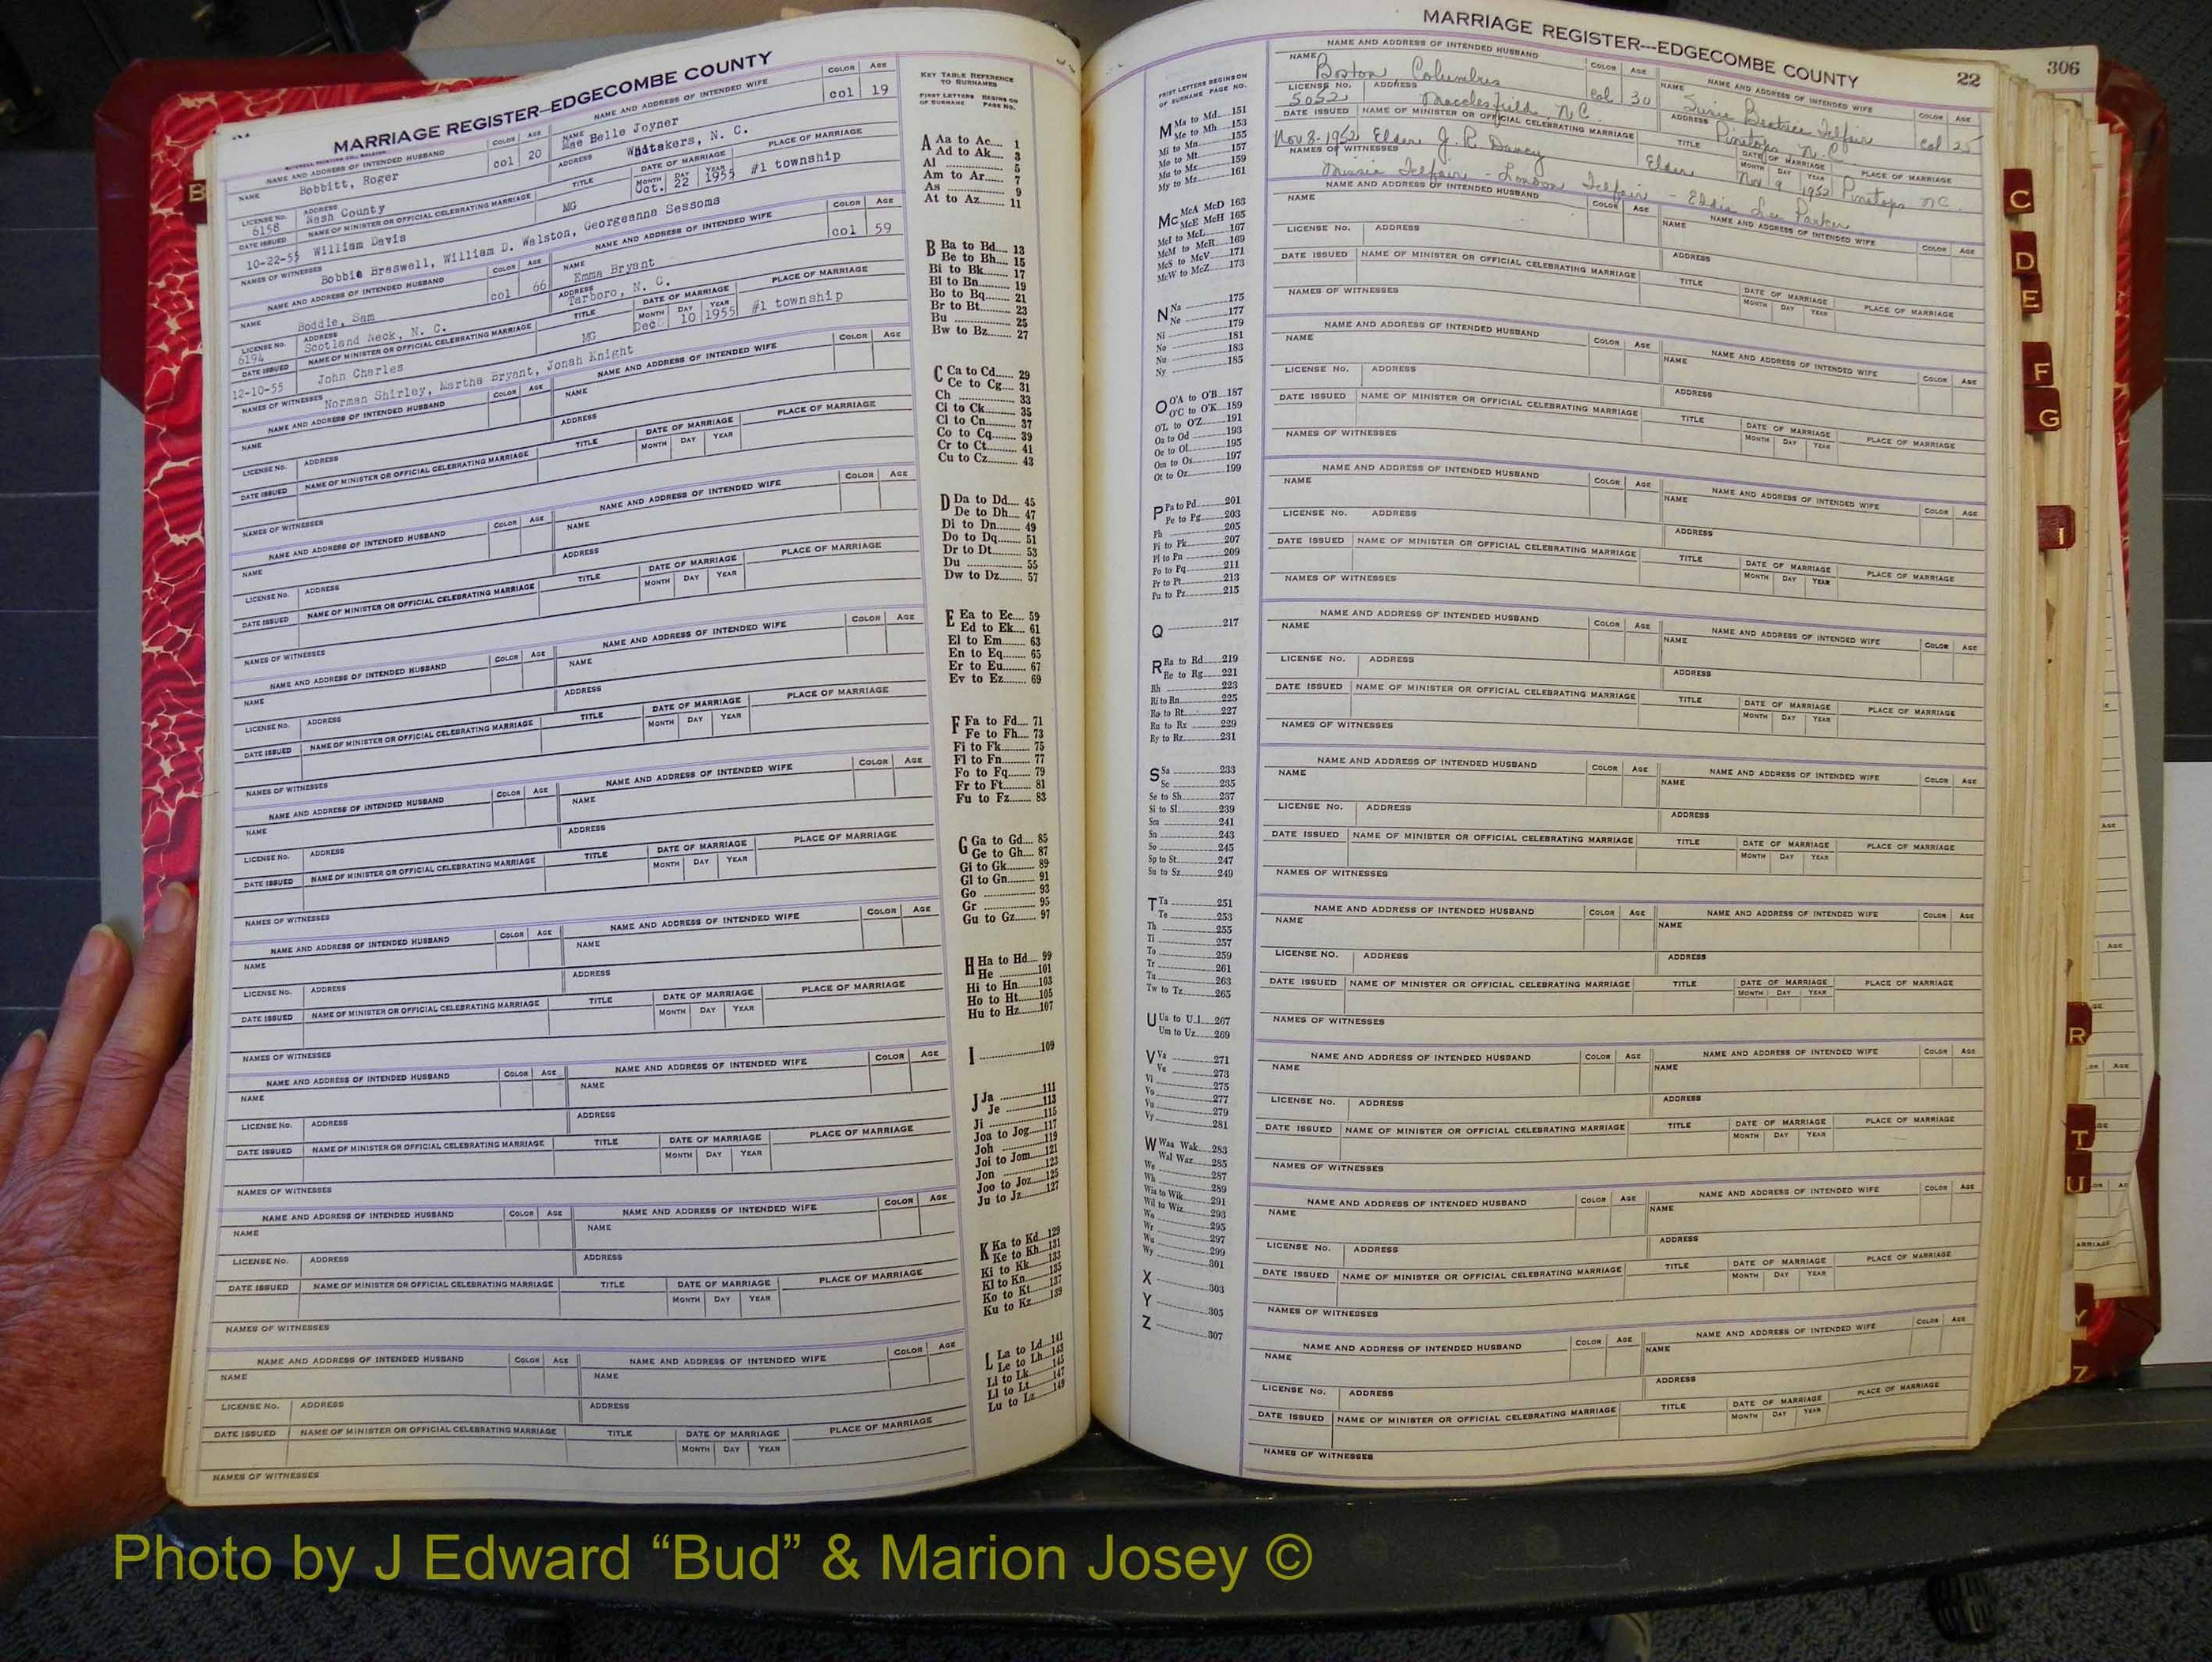 MARRIAGE REGISTER—EDGECOMBE COUNTY
NAME AND ADDRESS OF INTENDED HUSBAND COLOR AGE NAME AND ADDRESS OF INTENDED WIFE COLOR AGE
NAME Bobbitt, Roger col 20 NAME Mae Belle Joyner col 19
LICENSE NO. 6158 ADDRESS Nash County ADDRESS Whitakers, N. C.
DATE ISSUED NAME OF MINISTER OR OFFICIAL CELEBRATING MARRIAGE TITLE DATE OF MARRIAGE MONTH DAY YEAR PLACE OF MARRIAGE
10-22-55 William Davis MG Oct. 22 1955 #1 township
NAMES OF WITNESSES Bobbie Braswell, William D. Walston, Georgeanna Sessoms
NAME AND ADDRESS OF INTENDED HUSBAND COLOR AGE NAME AND ADDRESS OF INTENDED WIFE COLOR AGE
NAME Boddie, Sam col 66 NAME Emma Bryant col 59
LICENSE NO. 6194 ADDRESS Scotland Neck, N. C. ADDRESS Tarboro, N. C.
DATE ISSUED NAME OF MINISTER OR OFFICIAL CELEBRATING MARRIAGE TITLE DATE OF MARRIAGE MONTH DAY YEAR PLACE OF MARRIAGE
12-10-55 John Charles MG Dec 10 1955 #1 township
NAMES OF WITNESSES Norman Shirley, Martha Bryant, Jonah Knight
KEY TABLE REFERENCE
TO SURNAMES
FIRST LETTERS OF SURNAME BEGINS ON PAGE NO.
A Aa to Ac 1
Ad to Ak 3
Al 5
Am to Ar 7
As 9
At to Az 11
B Ba to Bd 13
Be to Bh 15
Bi to Bk 17
Bl to Bn 19
Bo to Bq 21
Br to Bt 23
Bu 25
Bw to Bz 27
C Ca to Cd 29
Ce to Cg 31
Ch 33
Ci to Ck 35
Cl to Cn 37
Co to Cq 39
Cr to Ct 41
Cu to Cz 43
D Da to Dd 45
De to Dh 47
Di to Dn 49
Do to Dq 51
Dr to Dt 53
Du 55
Dw to Dz 57
E Ea to Ec 59
Ed to Ek 61
El to Em 63
En to Eq 65
Er to Eu 67
Ev to Ez 69
F Fa to Fd 71
Fe to Fh 73
Fi to Fk 75
Fl to Fn 77
Fo to Fq 79
Fr to Ft 81
Fu to Fz 83
G Ga to Gd 85
Ge to Gh 87
Gi to Gk 89
Gl to Gn 91
Go 93
Gr 95
Gu to Gz 97
H Ha to Hd 99
He 101
Hi to Hn 103
Ho to Ht 105
Hu to Hz 107
I 109
J Ja 111
Je 113
Ji 115
Joa to Jog 117
Joh 119
Joi to Jom 121
Jon 123
Joo to Joz 125
Ju to Jz 127
K Ka to Kd 129
Ke to Kh 131
Ki to Kk 133
Kl to Kn 135
Ko to Kt 137
Ku to Kz 139
L La to Ld 141
Le to Lh 143
Li to Lk 145
Ll to Lt 147
Lu to Lz 149
MARRIAGE REGISTER—EDGECOMBE COUNTY 22
306
NAME AND ADDRESS OF INTENDED HUSBAND COLOR AGE NAME AND ADDRESS OF INTENDED WIFE COLOR AGE
NAME Boston Columbus Col 30 NAME Susie Beatrice Telfair Col 25
LICENSE NO. 5052 ADDRESS Macclesfield, N.C. ADDRESS Pinetops N.C.
DATE ISSUED NAME OF MINISTER OR OFFICIAL CELEBRATING MARRIAGE TITLE DATE OF MARRIAGE MONTH DAY YEAR PLACE OF MARRIAGE
Nov 8-1952 Elder J. R. Dancy Elder Nov 9 1952 Pinetops N.C.
NAMES OF WITNESSES Missie Telfair - London Telfair - Eddie Lee Parker
FIRST LETTERS OF SURNAME BEGINS ON PAGE NO.
M Ma to Md 151
Me to Mh 153
Mi to Mn 155
Mo to Mt 157
Mu to Mx 159
My to Mz 161
Mc McA McD 163
McE McH 165
McI to McL 167
McM to McR 169
McS to McV 171
McW to McZ 173
N Na 175
Ne 177
Ni 179
No 181
Nu 183
Ny 185
O O'A to O'B 187
O'C to O'K 189
O'L to O'Z 191
Oa to Od 193
Oe to Ol 195
Om to Os 197
Ot to Oz 199
P Pa to Pd 201
Pe to Pg 203
Ph 205
Pi to Pk 207
Pl to Pn 209
Po to Pq 211
Pr to Pt 213
Pu to Pz 215
Q 217
R Ra to Rd 219
Re to Rg 221
Rh 223
Ri to Rn 225
Ro to Rt 227
Ru to Rx 229
Ry to Rz 231
S Sa 233
Sc 235
Se to Sh 237
Si to Sl 239
Sm 241
Sn 243
So 245
Sp to St 247
Su to Sz 249
T Ta 251
Te 253
Th 255
Ti 257
To 259
Tr 261
Tu 263
Tw to Tz 265
U Ua to Ul 267
Um to Uz 269
V Va 271
Ve 273
Vi 275
Vo 277
Vu 279
Vy 281
W Waa Wak 283
Wal Waz 285
We 287
Wh 289
Wia to Wik 291
Wil to Wiz 293
Wo 295
Wr 297
Wu 299
Wy 301
X 303
Y 305
Z 307
B
C
D
E
F
G
I
R
T
U
Y
Z
Photo by J Edward “Bud” & Marion Josey ©